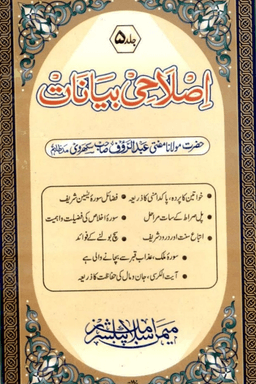 جلد ۵
اصلاحی بیانات
حضرت مولانا مفتی عبدالرؤف صاحب سکھروی مدظلہم
خواتین کا پردہ، پاکدامنی کا ذریعہ
فضائل سورۂ یٰسین شریف
پل صراط کے سات مراحل
سورۂ اخلاص کی فضیلت و اہمیت
اتباع سنت اور درود شریف
سچ بولنے کے فوائد
سورۂ ملک، عذاب قبر سے بچانے والی ہے
آیت الکرسی، جان و مال کی حفاظت کا ذریعہ
میمن اسلامک پبلشرز